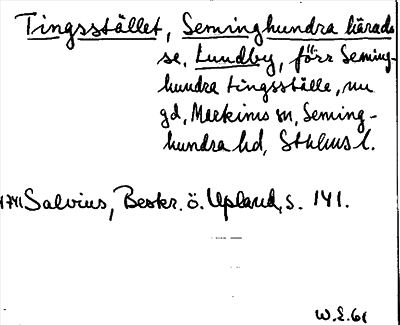 Tingsstället, Seminghundra härads
se. Lundby, förr Seming-
hundra tingsställe, nu
gd, Markims sn, Seming-
hundra hd, Sthlms l.
1741 Salvius, Beskr. ö. Upland, s. 141.
W.E. 61